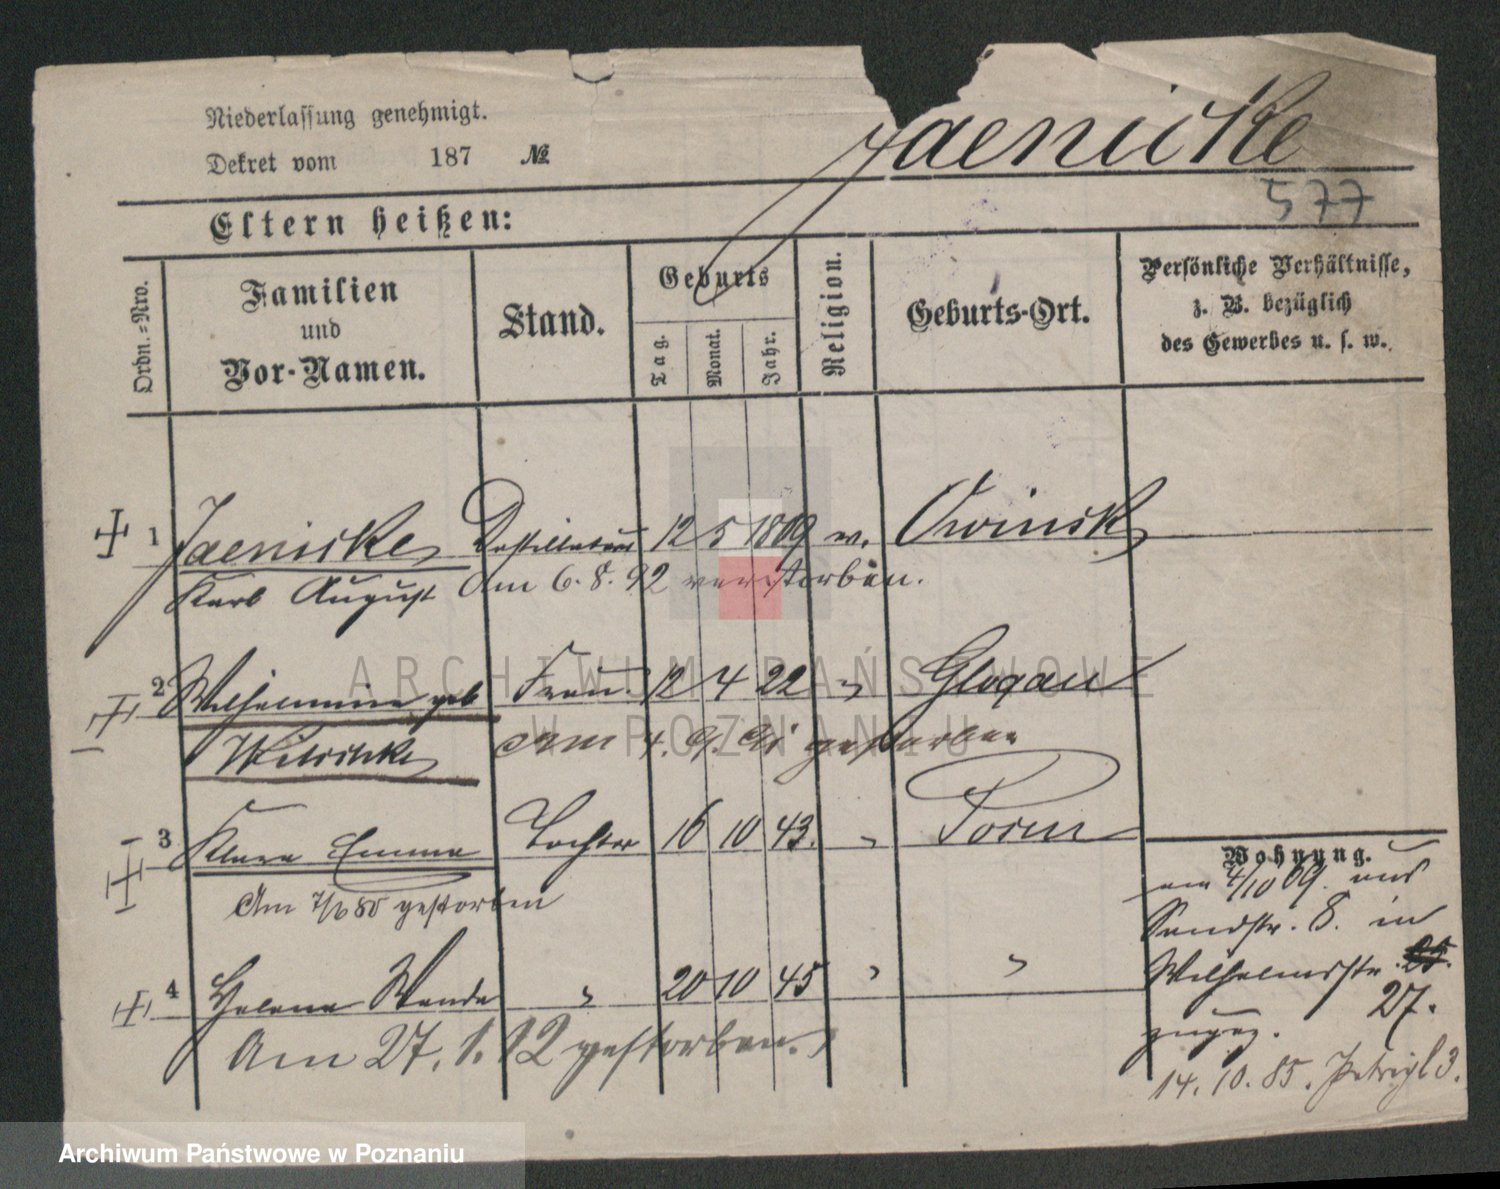 Niederlassung genehmigt.
Dekret vom 187 №
Jaenicke
577
Eltern heißen:
Ordn.=Nro.
Familien und Vor-Namen.
Stand.
Geburts
Tag. Monat. Jahr.
Religion.
Geburts-Ort.
Persönliche Verhältnisse,
z. B. bezüglich
des Gewerbes u. s. w.
1 Jaenicke Destillateur 12 5 1809 ev. Owinsk
Karl August Am 6. 8. 92 verstorben.
2 Wilhelmine geb Frau 12 4 22 " Glogau
am 4. 9. 91 gestorben
3 Klara Emma Tochter 16 10 43. " Posen
Am 7/6 80 gestorben
4 Helene Wanda " 20 10 45 " "
Am 27. 1. 12 gestorben.
Wohnung.
am 4/10 09. aus
Sandstr. 8. in
Wilhelmstr. 25.
27.
zugez.
14. 10. 85. Petripl 3.
ARCHIWUM PAŃSTWOWE
W POZNANIU
Archiwum Państwowe w Poznaniu